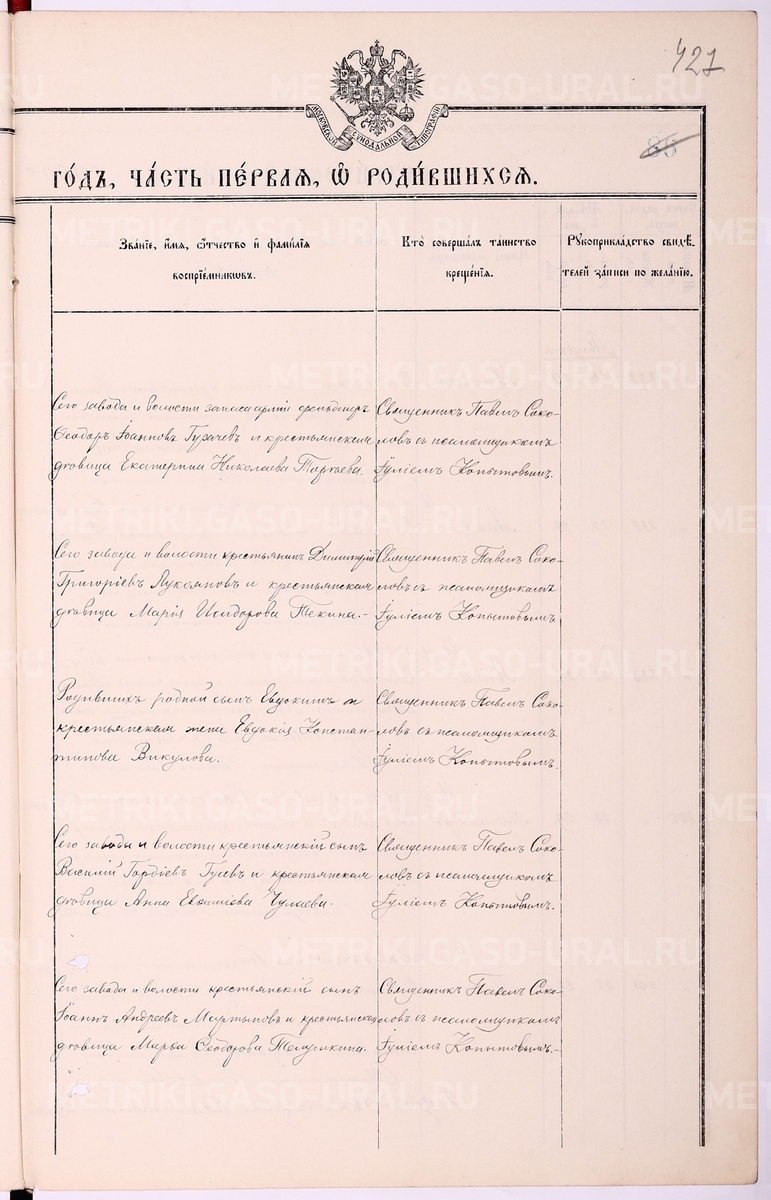 427
МОСКОВСКОЙ СѴНОДАЛЬНОЙ ТИПОГРАФІИ
85
ГО́ДЪ, ЧА́СТЬ ПЕ́РВАѦ, Ѽ РОДИ́ВШИХСѦ.
Зва́нїе, и́мѧ, ѻ҆́тчество и҆ фами́лїѧ
воспрїе́мниковъ.
Кто̀ соверша́лъ та́инство
креще́нїѧ.
Рꙋкоприкла́дство свидѣ́-
телей за́писи по жела́нїю.
Сего завода и волости запаса арміи фельдшеръ
Ѳеодоръ Іоанновъ и крестьянская
дѣвица Екатерина Николаева
Священникъ Павелъ Соко-
ловъ съ псаломщикомъ
Іуліемъ Копытовымъ.
Сего завода и волости крестьянинъ Димитрій
Григоріевъ Лукояновъ и крестьянская
дѣвица Марія Исидорова Текина.-
Священникъ Павелъ Соко-
ловъ съ псаломщикомъ
Іуліемъ Копытовымъ.
Родившихъ родной сынъ Евдокимъ и
крестьянская жена Евдокія Констан-
тинова Викулова.
Священникъ Павелъ Соко-
ловъ съ псаломщикомъ
Іуліемъ Копытовымъ.
Сего завода и волости крестьянскій сынъ
Василій Гордіевъ Гусевъ и крестьянская
дѣвица Анна Евѳиміева Чулаева.
Священникъ Павелъ Соко-
ловъ съ псаломщикомъ
Іуліемъ Копытовымъ.
Сего завода и волости крестьянскій сынъ
Іоаннъ Андреевъ Мартыновъ и крестьянская
дѣвица Марѳа Ѳеодорова
Священникъ Павелъ Соко-
ловъ съ псаломщикомъ
Іуліемъ Копытовымъ.-
METRIKI.GASO-URAL.RU